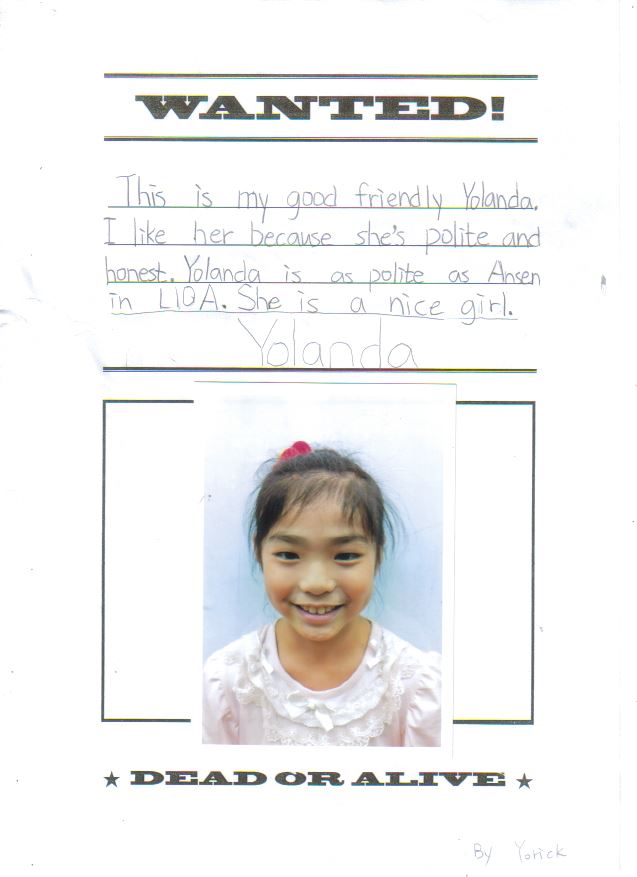 WANTED!
This is my good friendly Yolanda.
I like her because she's polite and
honest. Yolanda is as polite as Ansen
in L10A. She is a nice girl.
Yolanda
★ DEAD OR ALIVE ★
By Yorick